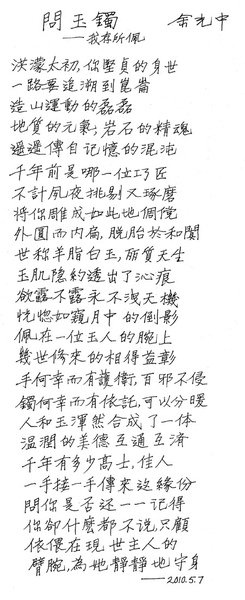 問玉鐲 余光中
——我存所佩
洪濛太初,你堅貞的身世
一路要追溯到崑崙
造山運動的磊磊
地質的元氣;岩石的精魂
遞邅傳自記憶的混沌
千年前是哪一位巧匠
不計夙夜挑剔又琢磨
將你雕成如此地倜儻
外圓而內扁,脫胎於和闐
世稱羊脂白玉,麗質天生
玉肌隱約透出了沁痕
欲露不露永不洩天機
恍惚如窺月中的倒影
佩在一位玉人的腕上
幾世修來的相得益彰
手何幸而有護衛,百邪不侵
鐲何幸而有依託,可以分暖
人和玉渾然合成了一体
溫潤的美德互通互济
千年有多少高士,佳人
一手接一手傳來這緣份
問你是否还一一記得
你卻什麼都不說,只顧
依偎在現世主人的
臂腕,為她靜靜地守身
——2010.5.7